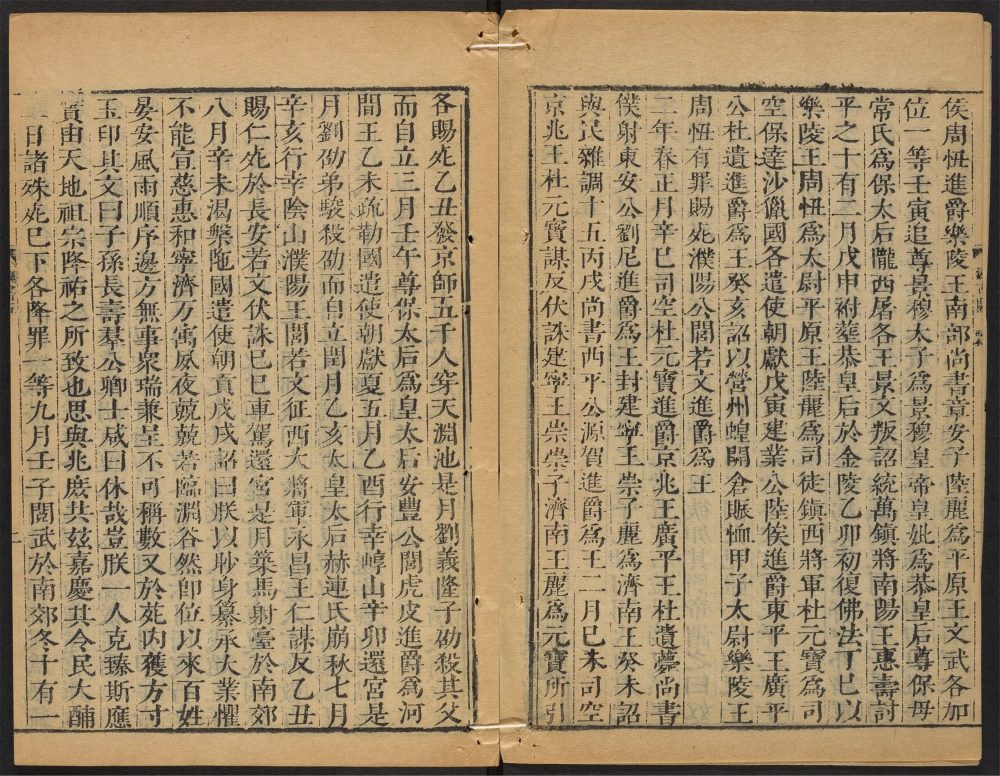 侯周忸進爵樂陵王南部尚書章安子陸麗爲平原王文武各加
位一等壬寅追尊景穆太子爲景穆皇帝皇妣爲恭皇后尊保母
常氏爲保太后隴西屠各王景文叛詔統萬鎮將南陽王惠壽討
平之十有二月戊申祔葬恭皇后於金陵乙卯初復佛法丁巳以
樂陵王周忸爲太尉平原王陸麗爲司徒鎮西將軍杜元寶爲司
空保達沙獵國各遣使朝獻戊寅建業公陸俟進爵東平王廣平
公杜遺進爵爲王癸亥詔以營州蝗開倉賑恤甲子太尉樂陵王
周忸有罪賜死濮陽公閭若文進爵爲王
二年春正月辛巳司空杜元寶進爵京兆王廣平王杜遺薨尚書
僕射東安公劉尼進爵爲王封建寧王崇子麗爲濟南王癸未詔
與民雜調十五丙戌尚書西平公源賀進爵爲王二月己未司空
京兆王杜元寶謀反伏誅建寧王崇崇子濟南王麗爲元寶所引
各賜死乙丑發京師五千人穿天淵池是月劉義隆子劭殺其父
而自立三月壬午尊保太后爲皇太后安豐公閭虎皮進爵爲河
間王乙未疏勒國遣使朝獻夏五月乙酉行幸崞山辛卯還宮是
月劉劭弟駿殺劭而自立閏月乙亥太皇太后赫連氏崩秋七月
辛亥行幸陰山濮陽王閭若文征西大將軍永昌王仁謀反乙丑
賜仁死於長安若文伏誅己巳車駕還宮是月築馬射臺於南郊
八月辛未渴槃陁國遣使朝貢戊戌詔曰朕以眇身纂承大業懼
不能宣慈惠和寧濟万寓夙夜兢兢若臨淵谷然即位以來百姓
晏安風雨順序邊方無事衆瑞兼呈不可稱數又於苑內獲方寸
玉印其文曰子孫長壽羣公卿士咸曰休哉豈朕一人克臻斯應
實由天地祖宗降祐之所致也思與兆庶共兹嘉慶其令民大酺
三日諸殊死已下各降罪一等九月壬子閱武於南郊冬十有一